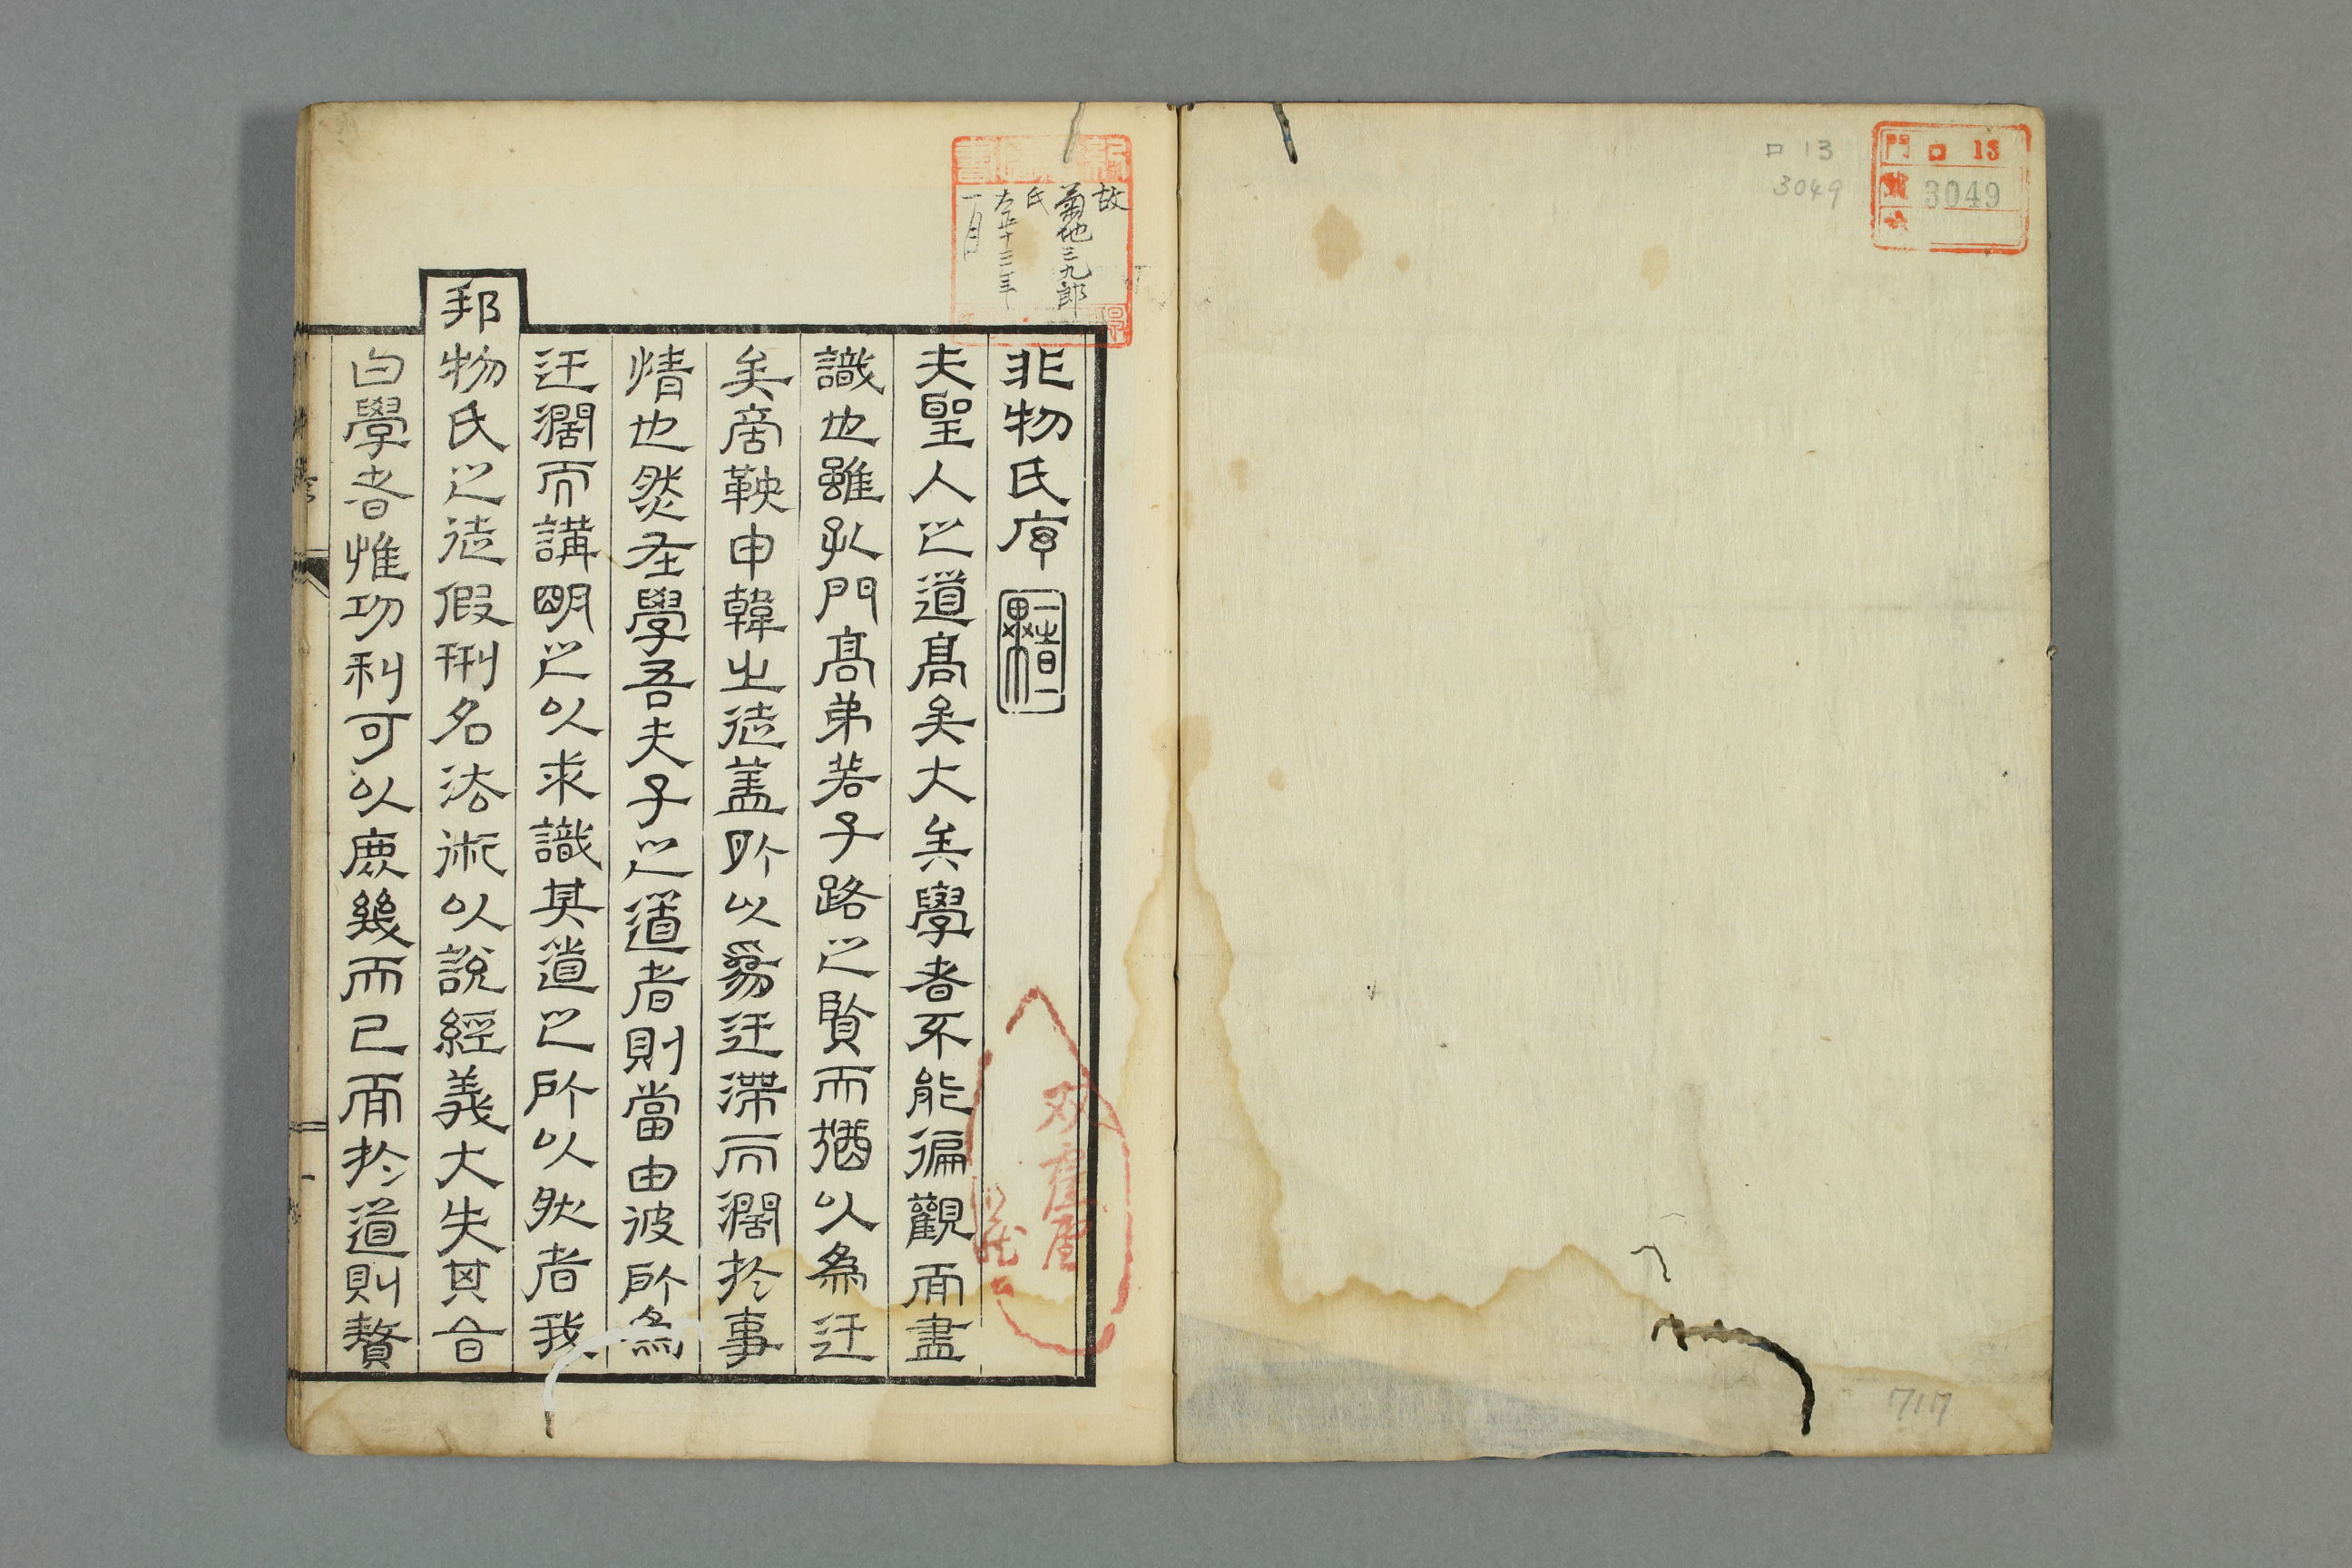 門 ロ 13
號 3049
ロ 13
3049
717
故
菊地三九郎
氏
大正十三年
一月
非物氏序
夫聖人之道高矣大矣學者不能徧觀而盡
識也雖孔門高弟若子路之賢而猶以為迂
矣商鞅申韓之徒蓋所以爲迂滯而濶於事
情也然在學吾夫子之道者則當由彼所為
迂濶而講明之以求識其道之所以然者我
邦物氏之徒假刑名法術以說經義大失其旨
白學者惟功利可以庶幾而已而於道則贅